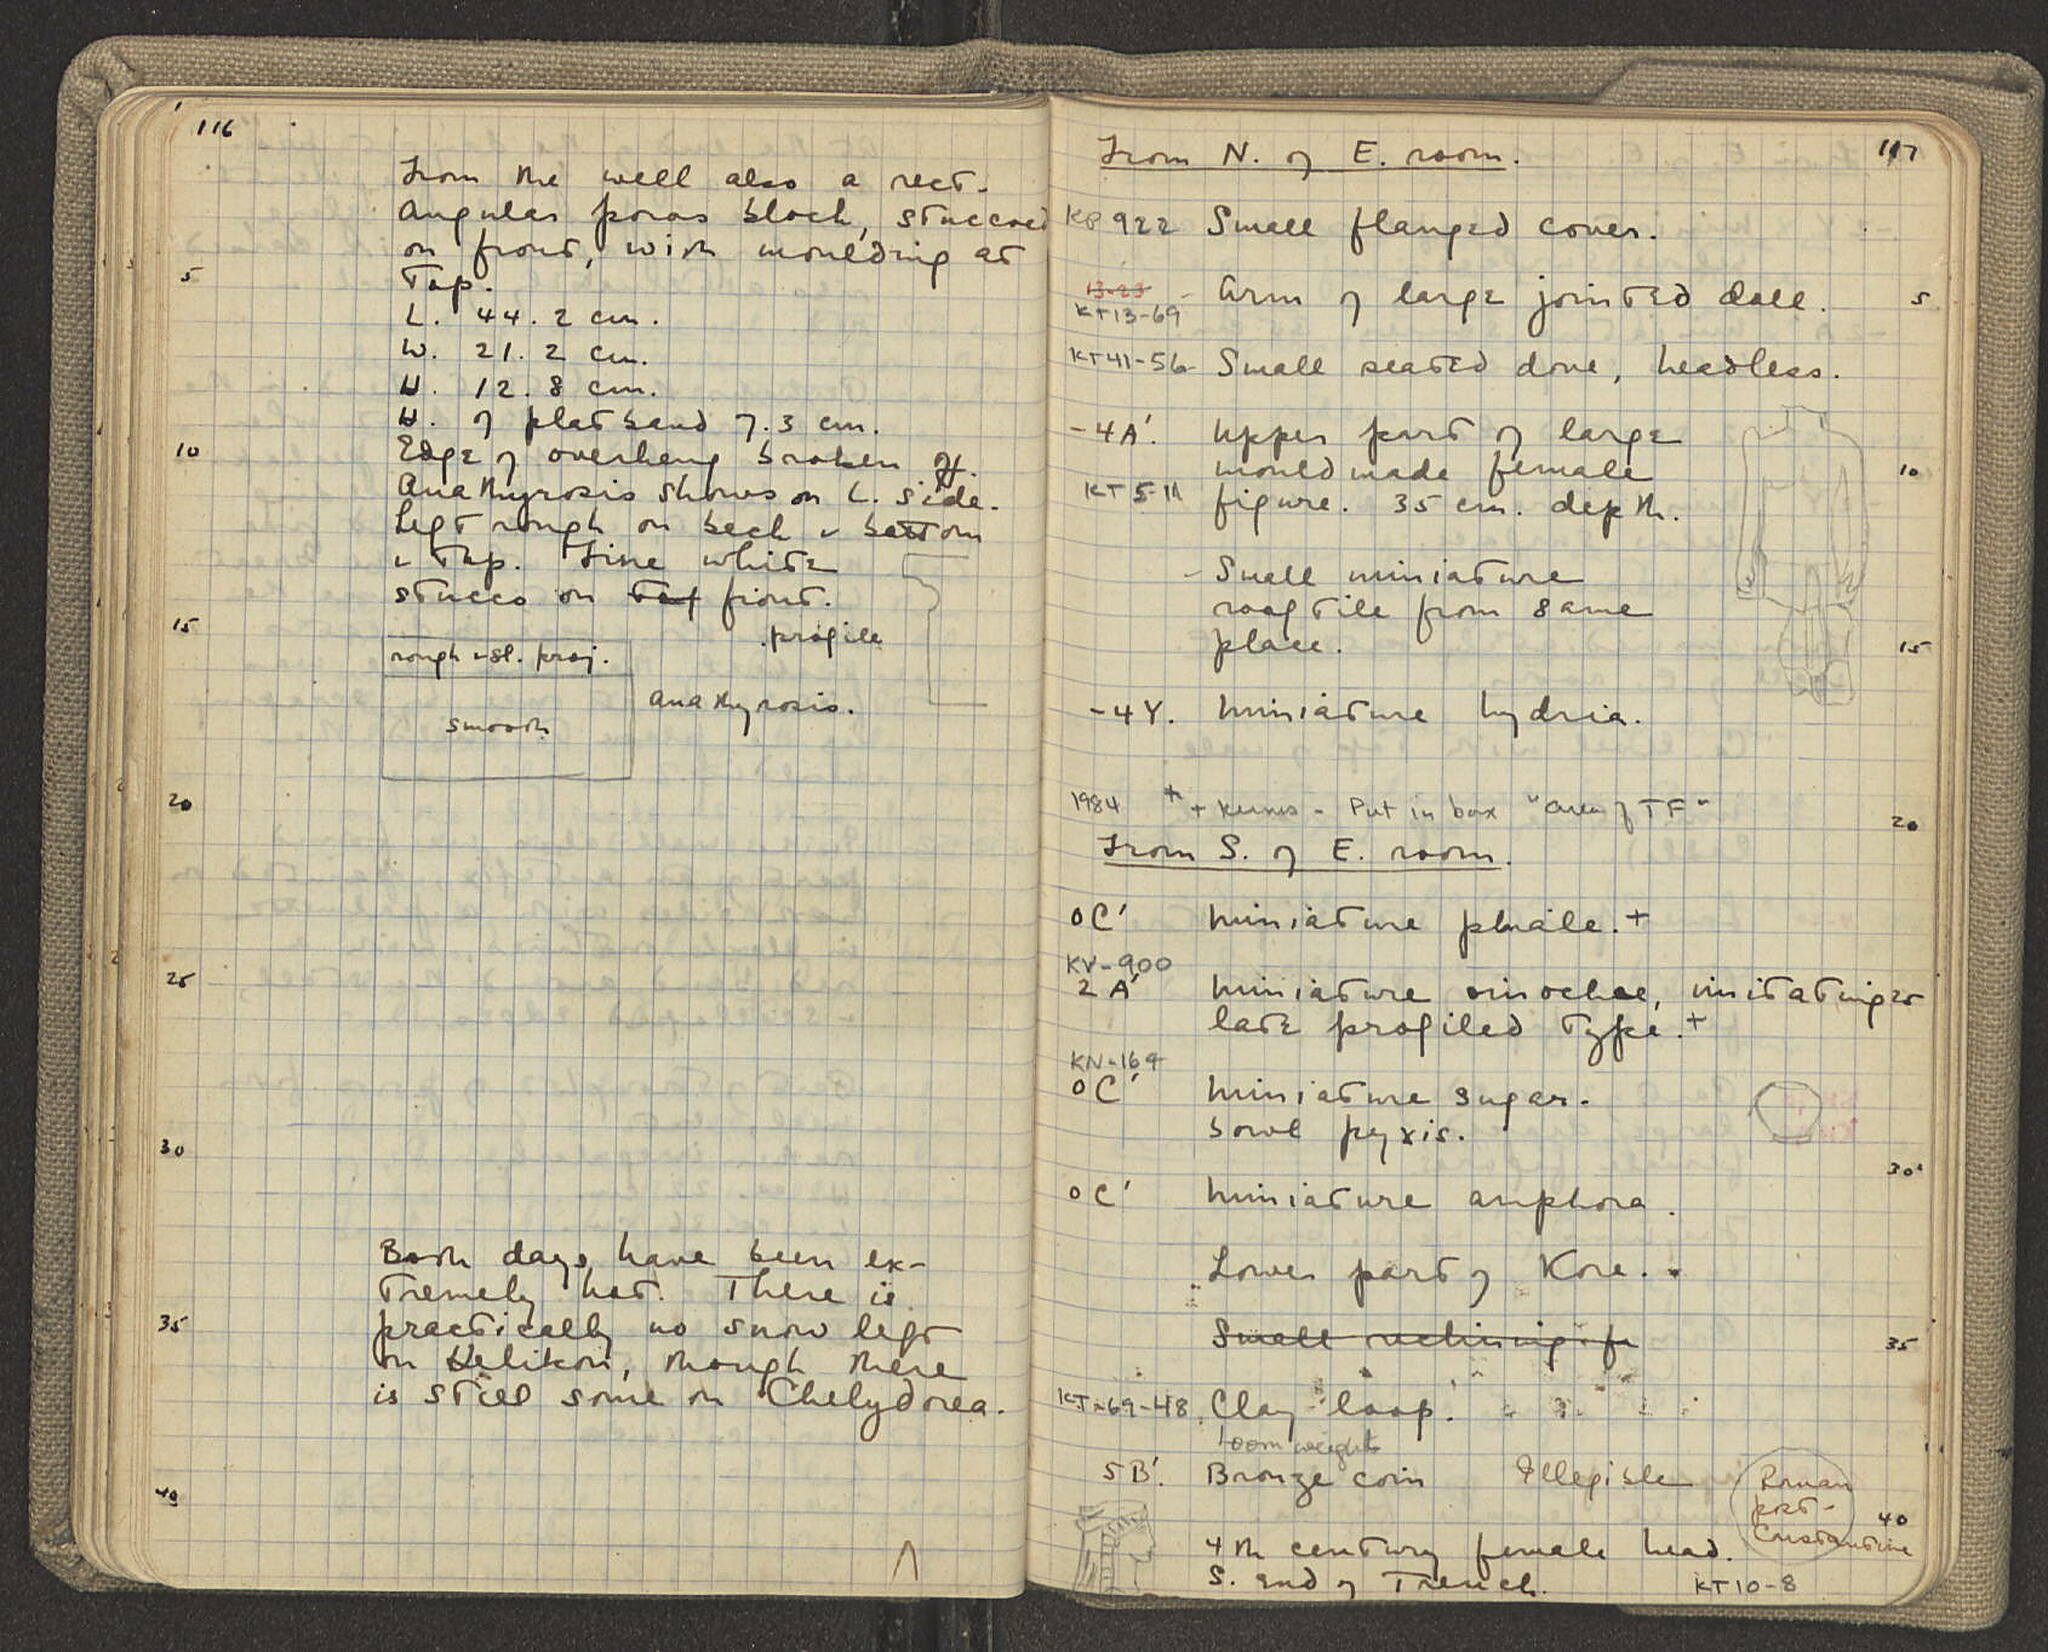 116
From the well also a rect-
angular poros block, stuccoed
on front, with moulding at
5
Top.
L. 44.2 cm.
W. 21.2 cm.
H. 12.8 cm.
H. of plat band 7.3 cm.
10
Edge of overhang broken off.
Anathyrosis shows on L. side.
Left rough on back & bottom
& Top. Fine white
stucco on front.
15
profile
rough & sl. proj.
anathyrosis.
smooth
20
25
30
Both days have been ex-
tremely hot. There is
35
practically no snow left
on Helikon, though there
is still some on Chelydorea.
40
117
From N. of E. room.
922 Small flanged cover.
13-23
KT13-69
- Arm of large jointed doll.
5
KT41-56- Small seated dove, headless.
-4A'. Upper part of large
mouldmade female
10
KT 5-11 figure. 35 cm. depth.
- Small miniature
roof tile from same
15
place.
-4Y. Miniature hydria.
1984 + + kernos - Put in box "Area of TF"
20
From S. of E. room.
0C' Miniature phiale.+
KV-900
2A' Miniature oinochoe, imitating 25
late profiled type.+
KN-164
0C' Miniature sugar-
bowl pyxis.
30
0C' Miniature amphora.
Lower part of Kore.
Small reclining f
35
KT-69-48 Clay loop.
loom weight
5B'. Bronze coin Illegible
Roman
post-
Constantine
40
4th century female head.
S. end of Trench. KT10-8